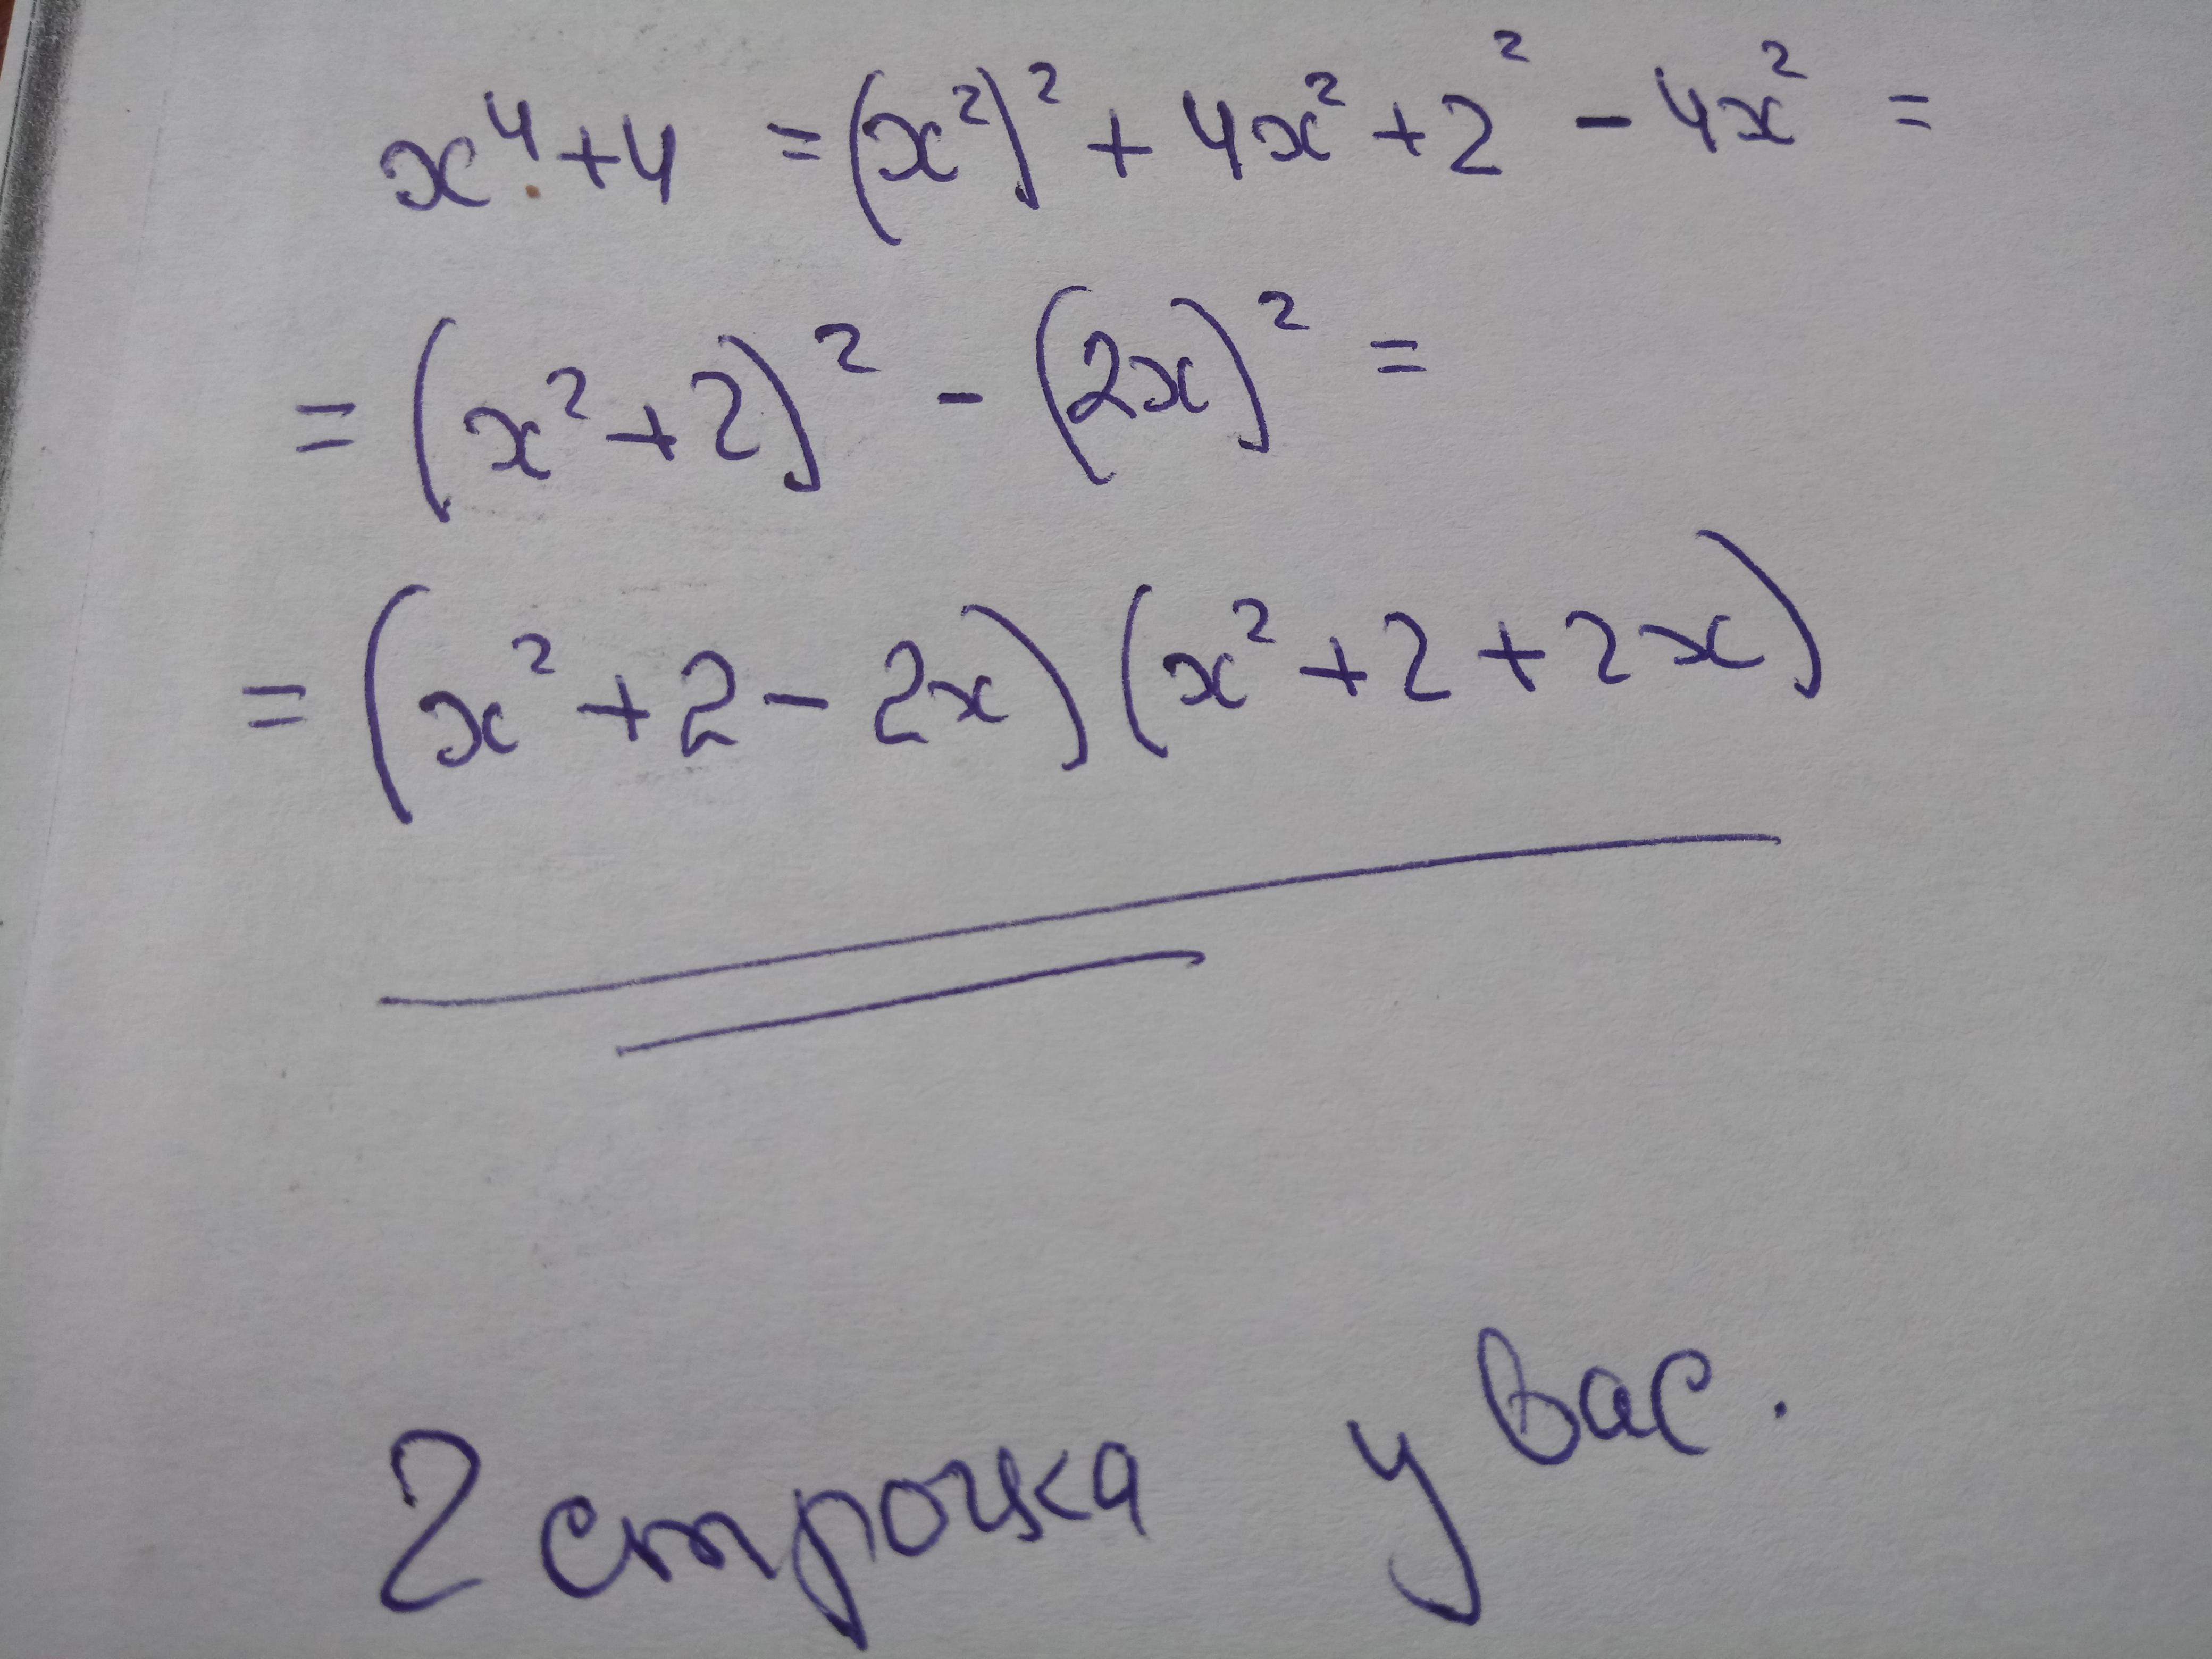 x⁴+4 =(x²)²+4x²+2²-4x²=
=(x²+2)²-(2x)²=
=(x²+2-2x)(x²+2+2x)
2 строчка у вас.